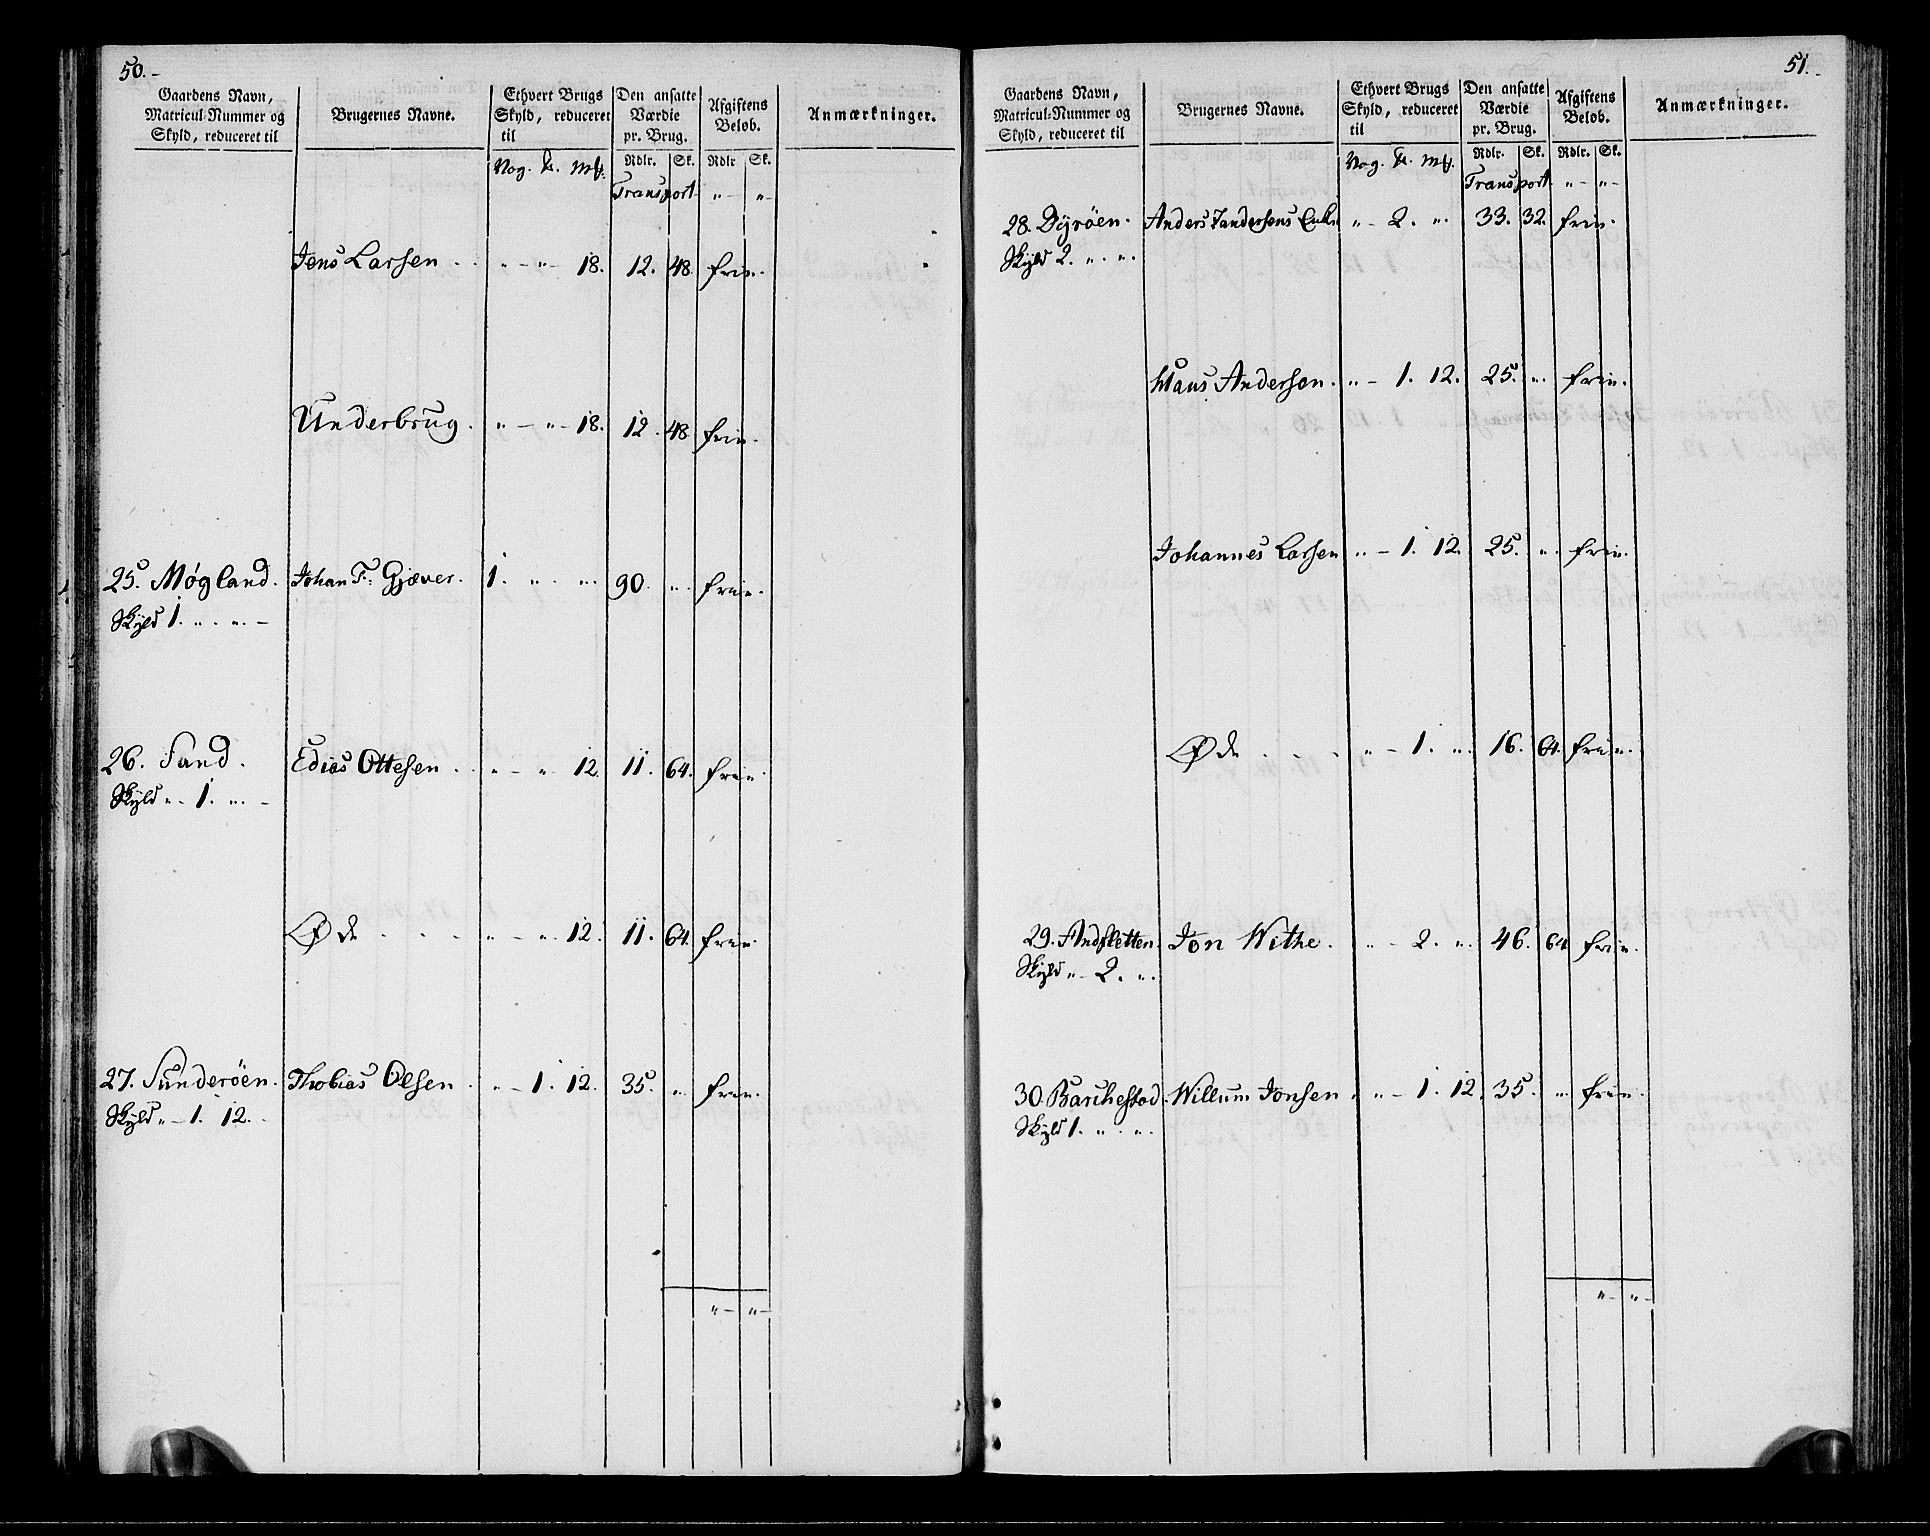 50.-
Gaardens Navn, Matricul-Nummer og Skyld, reduceret til
Brugernes Navne.
Ethvert Brugs Skyld, reduceret til
Den ansatte Værdie pr. Brug.
Afgiftens Beløb.
Anmærkninger.
Vog. ℔. Mk. Rdlr. Sk. Rdlr Sk.
Transport „ - „ -
Jens Larsen . . „ - „ - 18. 12. 48. frie.
Underbrug . „ - „ - 18. 12. 48 frie.
25. Møgland. Johan F: Gjæver. 1. „ „. 90. „. frie.
Skyld 1. „. „. -
26. Sand. Edias Ottesen . . „ - „. 12. 11. 64. frie.
Skyld „ - 1. „. -
Øde . . . „ - „. 12. 11. 64. frie.
27. Sunderöen. Thobias Olsen . „ - 1. 12. 35. „. frie.
Skyld „ - 1. 12. -
„ - „ -
51.
Gaardens Navn, Matricul-Nummer og Skyld, reduceret til
Brugernes Navne.
Ethvert Brugs Skyld, reduceret til
Den ansatte Værdie pr. Brug.
Afgiftens Beløb.
Anmærkninger.
Vog. ℔. Mk. Rdlr. Sk. Rdlr. Sk.
Transport „ - „ -
28. Dyröen. Anders „ - 2. „. 33. 32. frie.
Skyld 2. „. „.
Klaus Anderson. „ - 1. 12. 25. „. frie.
Johannes Larsen „ - 1. 12. 25. „. frie.
Øde . . . „ - 1. „. 16. 64. frie.
29. Andsletten. Jon Withe. „ - 2. „. 46. 64 frie.
Skyld „ - 2. „.
30. Barchestad. Willum Jonsen „ - 1. 12. 35. „. frie.
Skyld 1. „. „.
„ - „ -